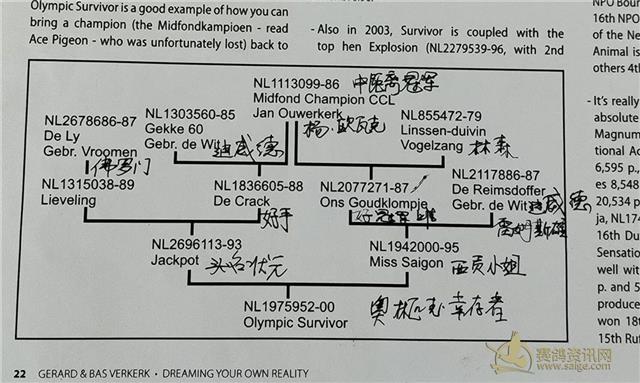 Olympic Survivor is a good example of how you can
bring a champion (the Midfondkampioen - read
Ace Pigeon - who was unfortunately lost) back to
- Also in 2003, Survivor is coupled with the
top hen Explosion (NL2279539-96, with 2nd
NPO Bour
16th NPO
of the Ne
Animal is
others 4th
- It's really
absolute
Magnum
tional Ac
6,595 p.,
es 8,548
20,534 p
ja, NL174
16th Du
Sensation
well with
p. and 5
produce
won 18t
15th Ruf
NL1113099-86 中距离冠军
Midfond Champion CCL
Jan Ouwerkerk
杨·欧瓦克
NL2678686-87
De Ly
Gebr. Vroomen
佛罗门
NL1303560-85
Gekke 60
Gebr. de Wit 迪威德
NL855472-79
Linssen-duivin
Vogelzang 林森
NL1315038-89
Lieveling
NL1836605-88
De Crack
好手
NL2077271-87
Ons Goudklompje
NL2117886-87
De Reimsdoffer
Gebr. de Wit 迪威德
雷姆斯雄
NL2696113-93
Jackpot 头名状元
NL1942000-95
Miss Saigon 西贡小姐
NL1975952-00
Olympic Survivor 奥林匹克幸存者
22 GERARD & BAS VERKERK • DREAMING YOUR OWN REALITY
赛鸽资讯网
www.saige.com